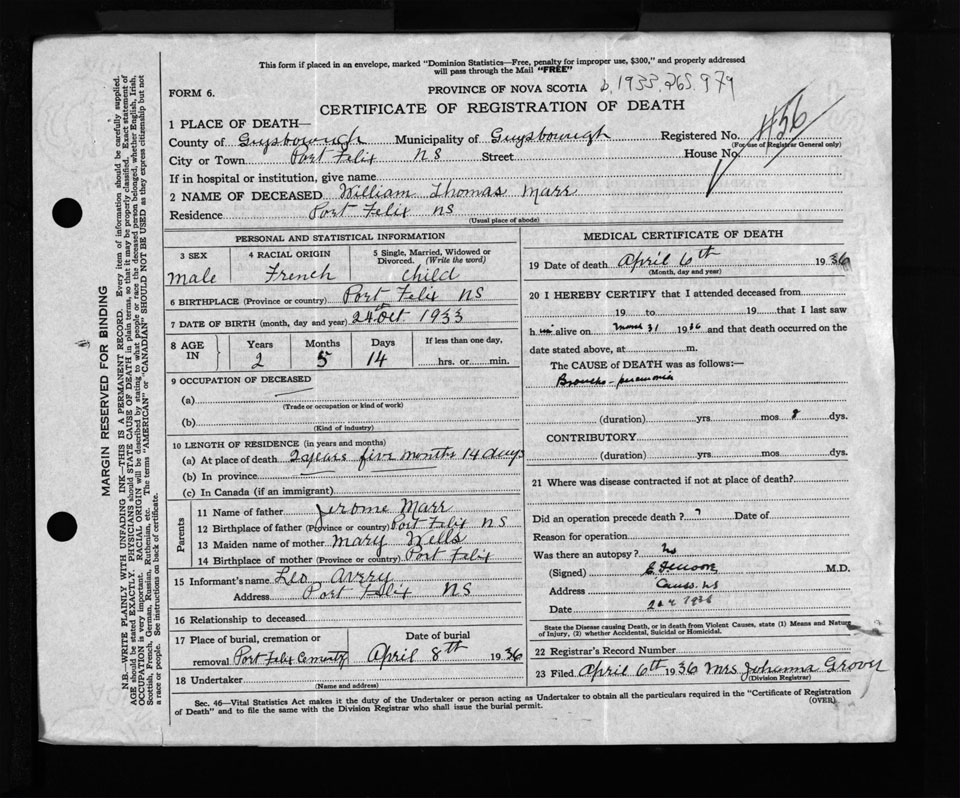 This form if placed in an envelope, marked "Dominion Statistics—Free, penalty for improper use, $300," and properly addressed
will pass through the Mail "FREE"
FORM 6.
PROVINCE OF NOVA SCOTIA b. 1933.265.979
CERTIFICATE OF REGISTRATION OF DEATH
1 PLACE OF DEATH—
County of Guysbourugh Municipality of Guysbourugh Registered No. #56
(For use of Registrar General only)
City or Town Port Felix NS Street House No.
If in hospital or institution, give name
2 NAME OF DECEASED William Thomas Marr
Residence Port Felix NS
(Usual place of abode)
PERSONAL AND STATISTICAL INFORMATION
3 SEX Male
4 RACIAL ORIGIN French
5 Single, Married, Widowed or Divorced. (Write the word) Child
6 BIRTHPLACE (Province or country) Port Felix NS
7 DATE OF BIRTH (month, day and year) 24th Oct 1933
8 AGE IN
Years Months Days If less than one day,
2 5 14 hrs. or min.
9 OCCUPATION OF DECEASED
(a)
(Trade or occupation or kind of work)
(b)
(Kind of industry)
10 LENGTH OF RESIDENCE (in years and months)
(a) At place of death 2 years five months 14 days
(b) In province
(c) In Canada (if an immigrant)
Parents
11 Name of father Jerome Marr
12 Birthplace of father (Province or country) Port Felix NS
13 Maiden name of mother Mary Wells
14 Birthplace of mother (Province or country) Port Felix
15 Informant's name Leo Avery
Address Port Felix NS
16 Relationship to deceased
17 Place of burial, cremation or removal Port Felix Cementy
Date of burial April 8th 1936
18 Undertaker
(Name and address)
MEDICAL CERTIFICATE OF DEATH
19 Date of death April 6th 1936
(Month, day and year)
20 I HEREBY CERTIFY that I attended deceased from
19 to 19 that I last saw
h im alive on March 31 1936 and that death occurred on
date stated above, at m.
The CAUSE of DEATH was as follows:—
Broncho-pneumonia
(duration) yrs. mos 8 dys.
CONTRIBUTORY
(duration) yrs. mos. dys.
21 Where was disease contracted if not at place of death?
Did an operation precede death? Date of
Reason for operation
Was there an autopsy? No
(Signed) M.D.
Address Canso. NS
Date 1936
State the Disease causing Death, or in death from Violent Causes, state (1) Means and Nature
of Injury, (2) whether Accidental, Suicidal or Homicidal.
22 Registrar's Record Number
23 Filed April 6th 1936 Mrs Johanna Grover
(Division Registrar)
Sec. 46—Vital Statistics Act makes it the duty of the Undertaker or person acting as Undertaker to obtain all the particulars required in the "Certificate of Registration
of Death" and to file the same with the Division Registrar who shall issue the burial permit.
(OVER)
MARGIN RESERVED FOR BINDING
N.B.—WRITE PLAINLY WITH UNFADING INK—THIS IS A PERMANENT RECORD. Every item of information should be carefully supplied.
AGE should be stated EXACTLY. PHYSICIANS should STATE CAUSE OF DEATH in plain terms, so that it may be properly classified. Exact statement of
OCCUPATION is very important. RACIAL ORIGIN will be described by stating to what people or race the deceased person belonged, whether English, Irish,
Scottish, French, German, Russian, Ruthenian, etc. The terms "AMERICAN" or "CANADIAN" SHOULD NOT BE USED as they express citizenship but not
a race or people. See instructions on back of certificate.